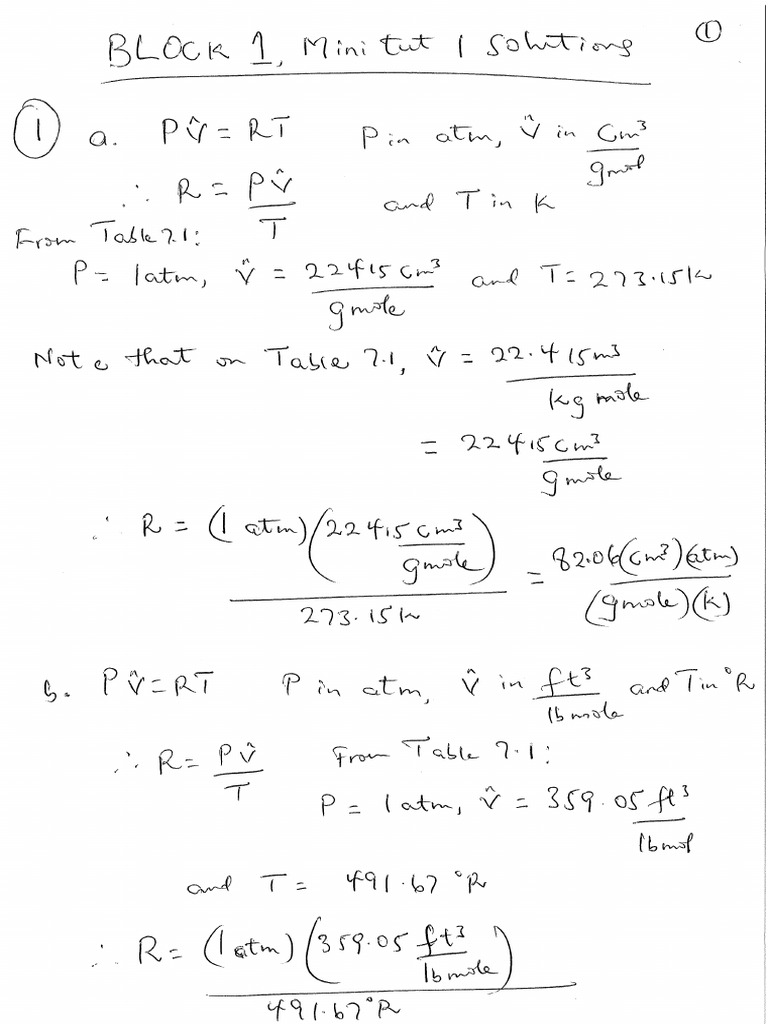 BLOCK 1, Mini tut 1 Solutions
①
① a. PV̂ = RT P in atm, V̂ in cm³/gmol
∴ R = PV̂/T and T in K
From Table 7.1:
P = 1atm, V̂ = 22415 cm³/gmole and T = 273.15K
Note that on Table 7.1, V̂ = 22.415m³/kg mole
= 22415 cm³/gmole
∴ R = (1 atm)(22415 cm³/gmole)/273.15K = 82.06(cm³)(atm)/(gmole)(K)
b. PV̂ = RT P in atm, V̂ in ft³/lbmole and T in °R
∴ R = PV̂/T From Table 7.1:
P = 1atm, V̂ = 359.05 ft³/lbmol
and T = 491.67 °R
∴ R = (1atm)(359.05 ft³/lbmole)/491.67°R